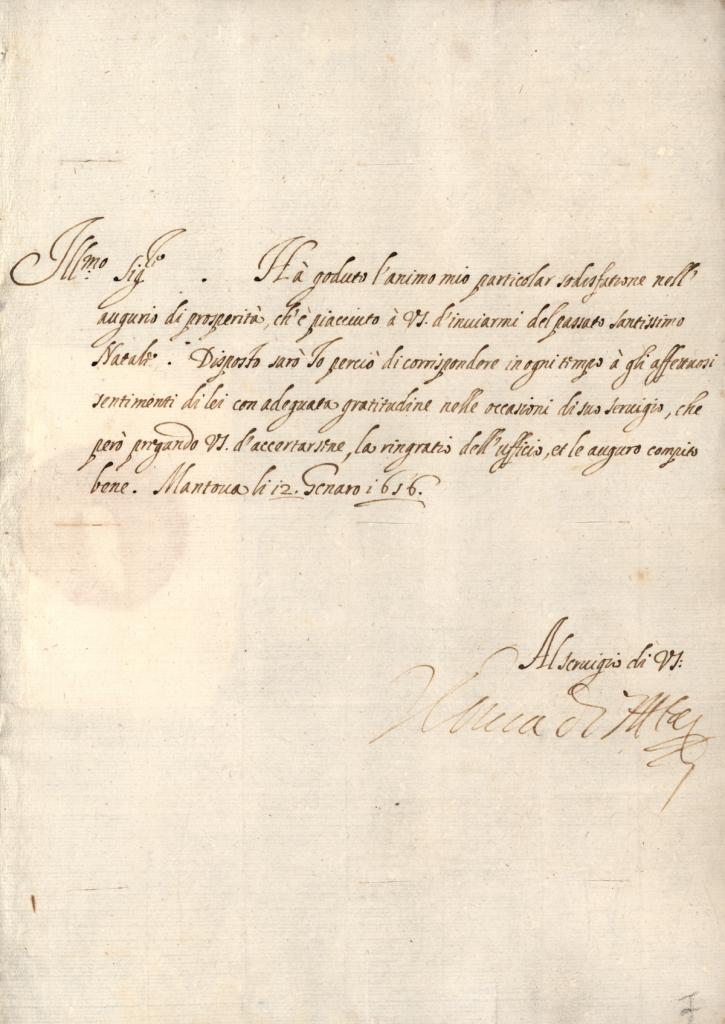 Ill.mo Sig.re . Hà goduto l'animo mio particolar sodisfatione nell'
augurio di prosperità, ch'è piacciuto à VS. d'inuiarmi del passato santissimo
Natale . Disposto sarò Io perciò di corrispondere in ogni tempo à gli affettuosi
sentimenti di lei con adeguata gratitudine nelle occasioni di suo seruigio, che
però pregando VS. d'accertarsene, la ringratio dell'ufficio, et le auguro compito
bene. Mantoua li 12. Genaro 1656.
Al seruigio di VS:
Il Duca di